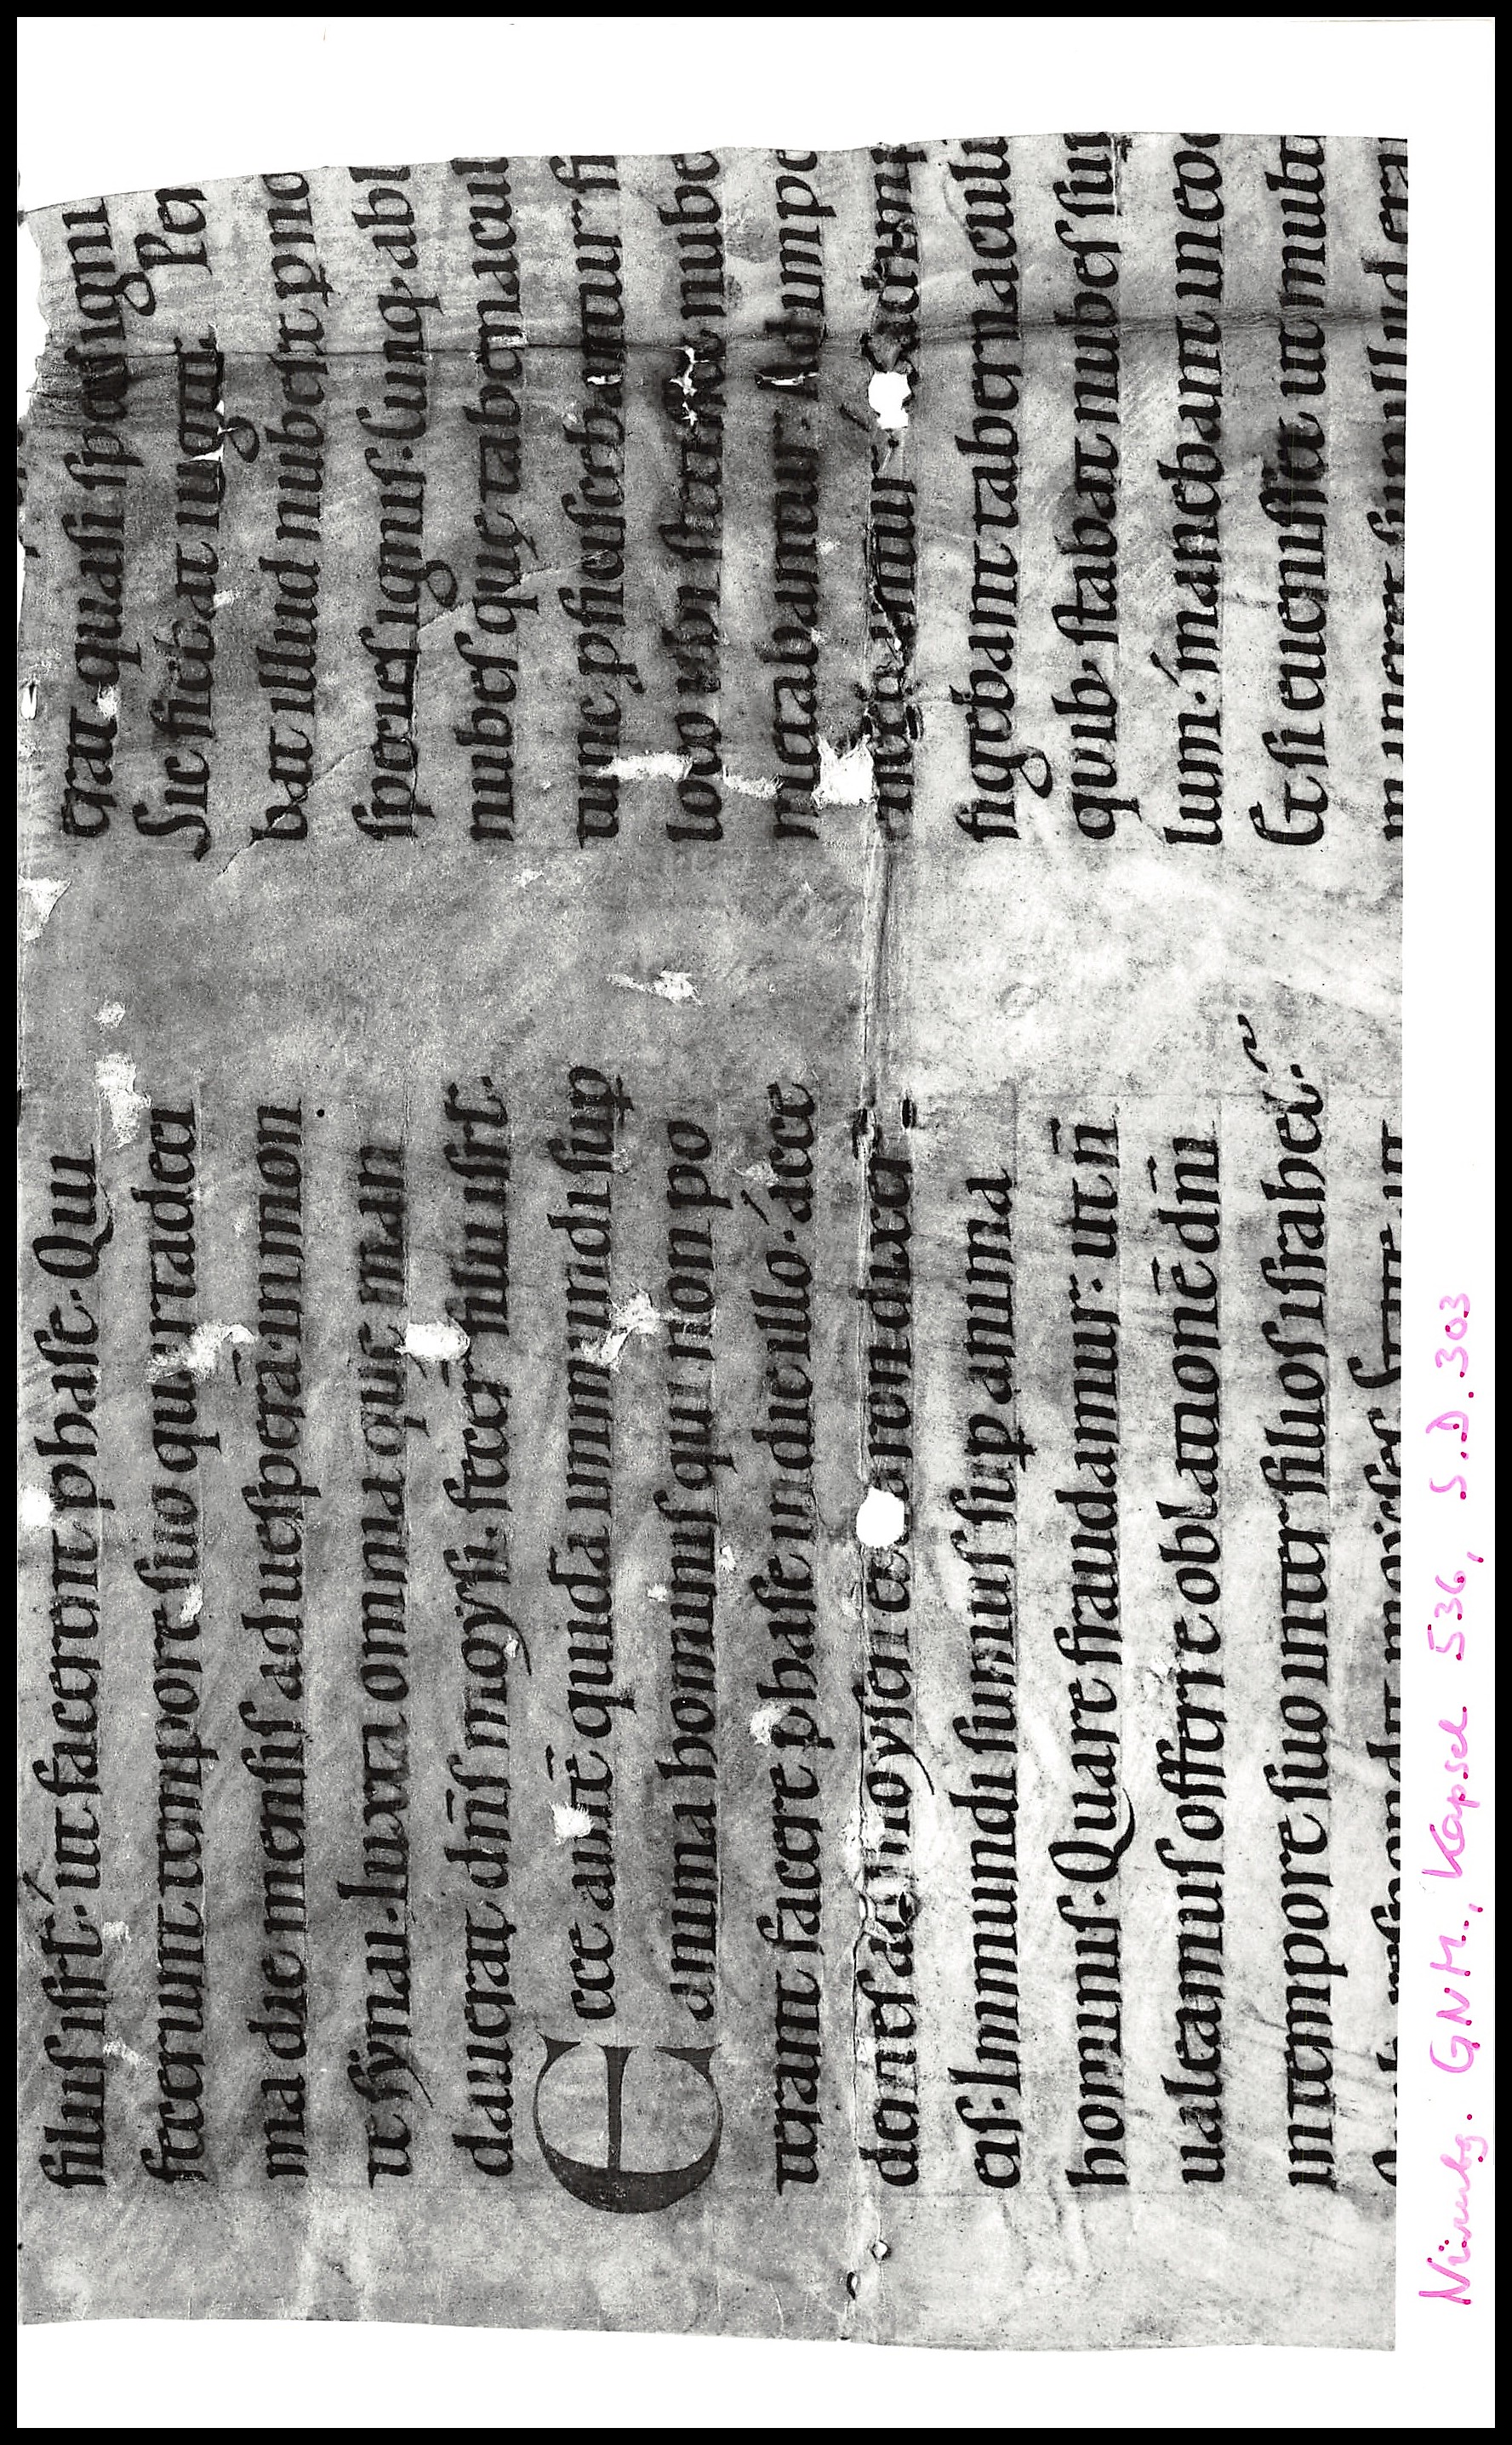 filiis isrł.́ ut facerent phase. Qui
fecerunt tempore suo quartadeci
ma die mensis ad uesperā. in mon
te synai. Iuxta omnia que man
dauerat dn̄s moysi. fecer filii isrł.
Ecce aut̄e quidā immundi sup
anima hominis qui non po
terant facere phase in die illo.́ acce
dentes ad moysen et aaron dixer
eis. Immundi sumus sup anima
hominis. Quare fraudamur: ut n̄
ualeamus offerre oblationē dn̄i
in tempore suo inter filios israhel.́
moyses State ut
erat quasi species igni
Sic fiebat iugit. Per
bat illud nubes et p no
species ignis. Cumq; abl
nubes que tabernacul
tunc pficiscebantur fi
loco ubi stetisset nube
metabantur. Ad impe
figebant tabernaculu
quib; stabat nubes sup
lum.́ manebant in eod
Et si euenisset ut multo
maneret sup illud era
Nürnbg. GNM., Kapsel 536, S.D. 303